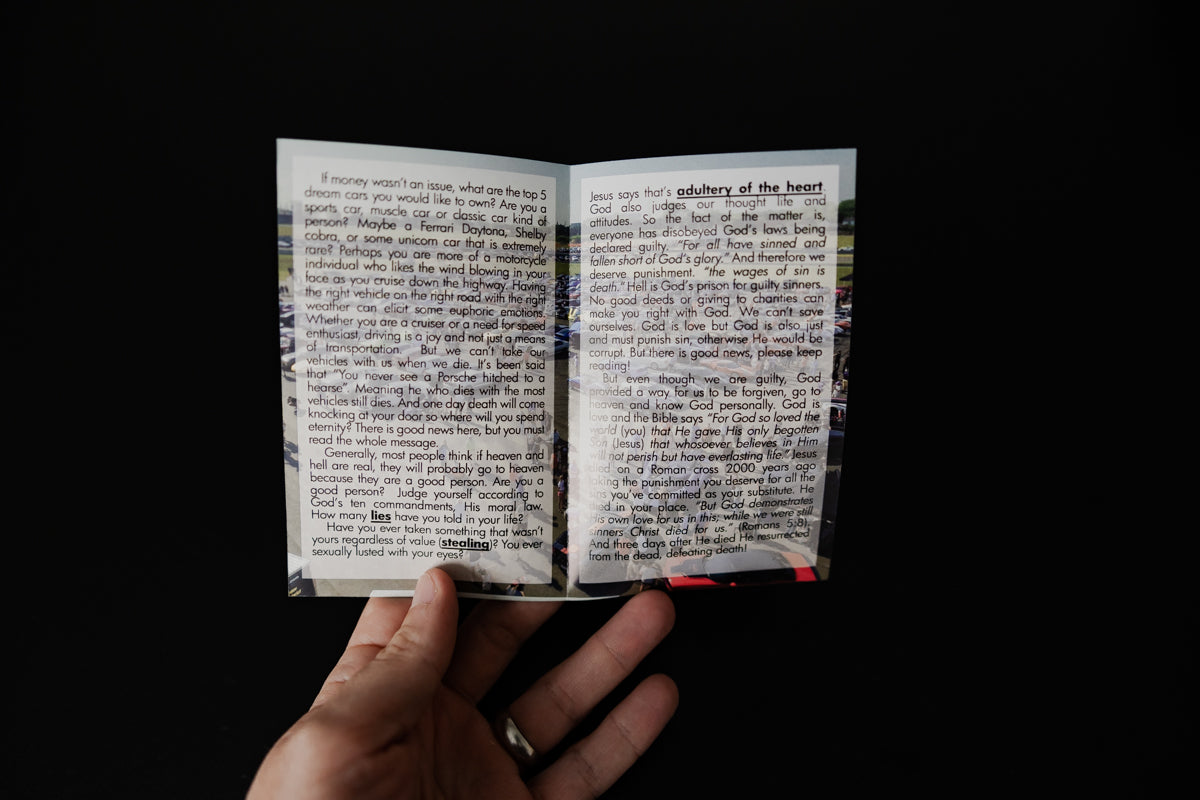 If money wasn't an issue, what are the top 5
dream cars you would like to own? Are you a
sports car, muscle car or classic car kind of
person? Maybe a Ferrari Daytona, Shelby
cobra, or some unicorn car that is extremely
rare? Perhaps you are more of a motorcycle
individual who likes the wind blowing in your
face as you cruise down the highway. Having
the right vehicle on the right road with the right
weather can elicit some euphoric emotions.
Whether you are a cruiser or a need for speed
enthusiast, driving is a joy and not just a means
of transportation. But we can't take our
vehicles with us when we die. It's been said
that "You never see a Porsche hitched to a
hearse". Meaning he who dies with the most
vehicles still dies. And one day death will come
knocking at your door so where will you spend
eternity? There is good news here, but you must
read the whole message.
Generally, most people think if heaven and
hell are real, they will probably go to heaven
because they are a good person. Are you a
good person? Judge yourself according to
God's ten commandments, His moral law.
How many lies have you told in your life?
Have you ever taken something that wasn't
yours regardless of value (stealing)? You ever
sexually lusted with your eyes?
Jesus says that's adultery of the heart.
God also judges our thought life and
attitudes. So the fact of the matter is,
everyone has disobeyed God's laws being
declared guilty. "For all have sinned and
fallen short of God's glory." And therefore we
deserve punishment. "the wages of sin is
death." Hell is God's prison for guilty sinners.
No good deeds or giving to charities can
make you right with God. We can't save
ourselves. God is love but God is also just
and must punish sin, otherwise He would be
corrupt. But there is good news, please keep
reading!
But even though we are guilty, God
provided a way for us to be forgiven, go to
heaven and know God personally. God is
love and the Bible says "For God so loved the
world (you) that He gave His only begotten
Son (Jesus) that whosoever believes in Him
will not perish but have everlasting life." Jesus
died on a Roman cross 2000 years ago
taking the punishment you deserve for all the
sins you've committed as your substitute. He
died in your place. "But God demonstrates
His own love for us in this; while we were still
sinners Christ died for us." (Romans 5:8).
And three days after He died He resurrected
from the dead, defeating death!